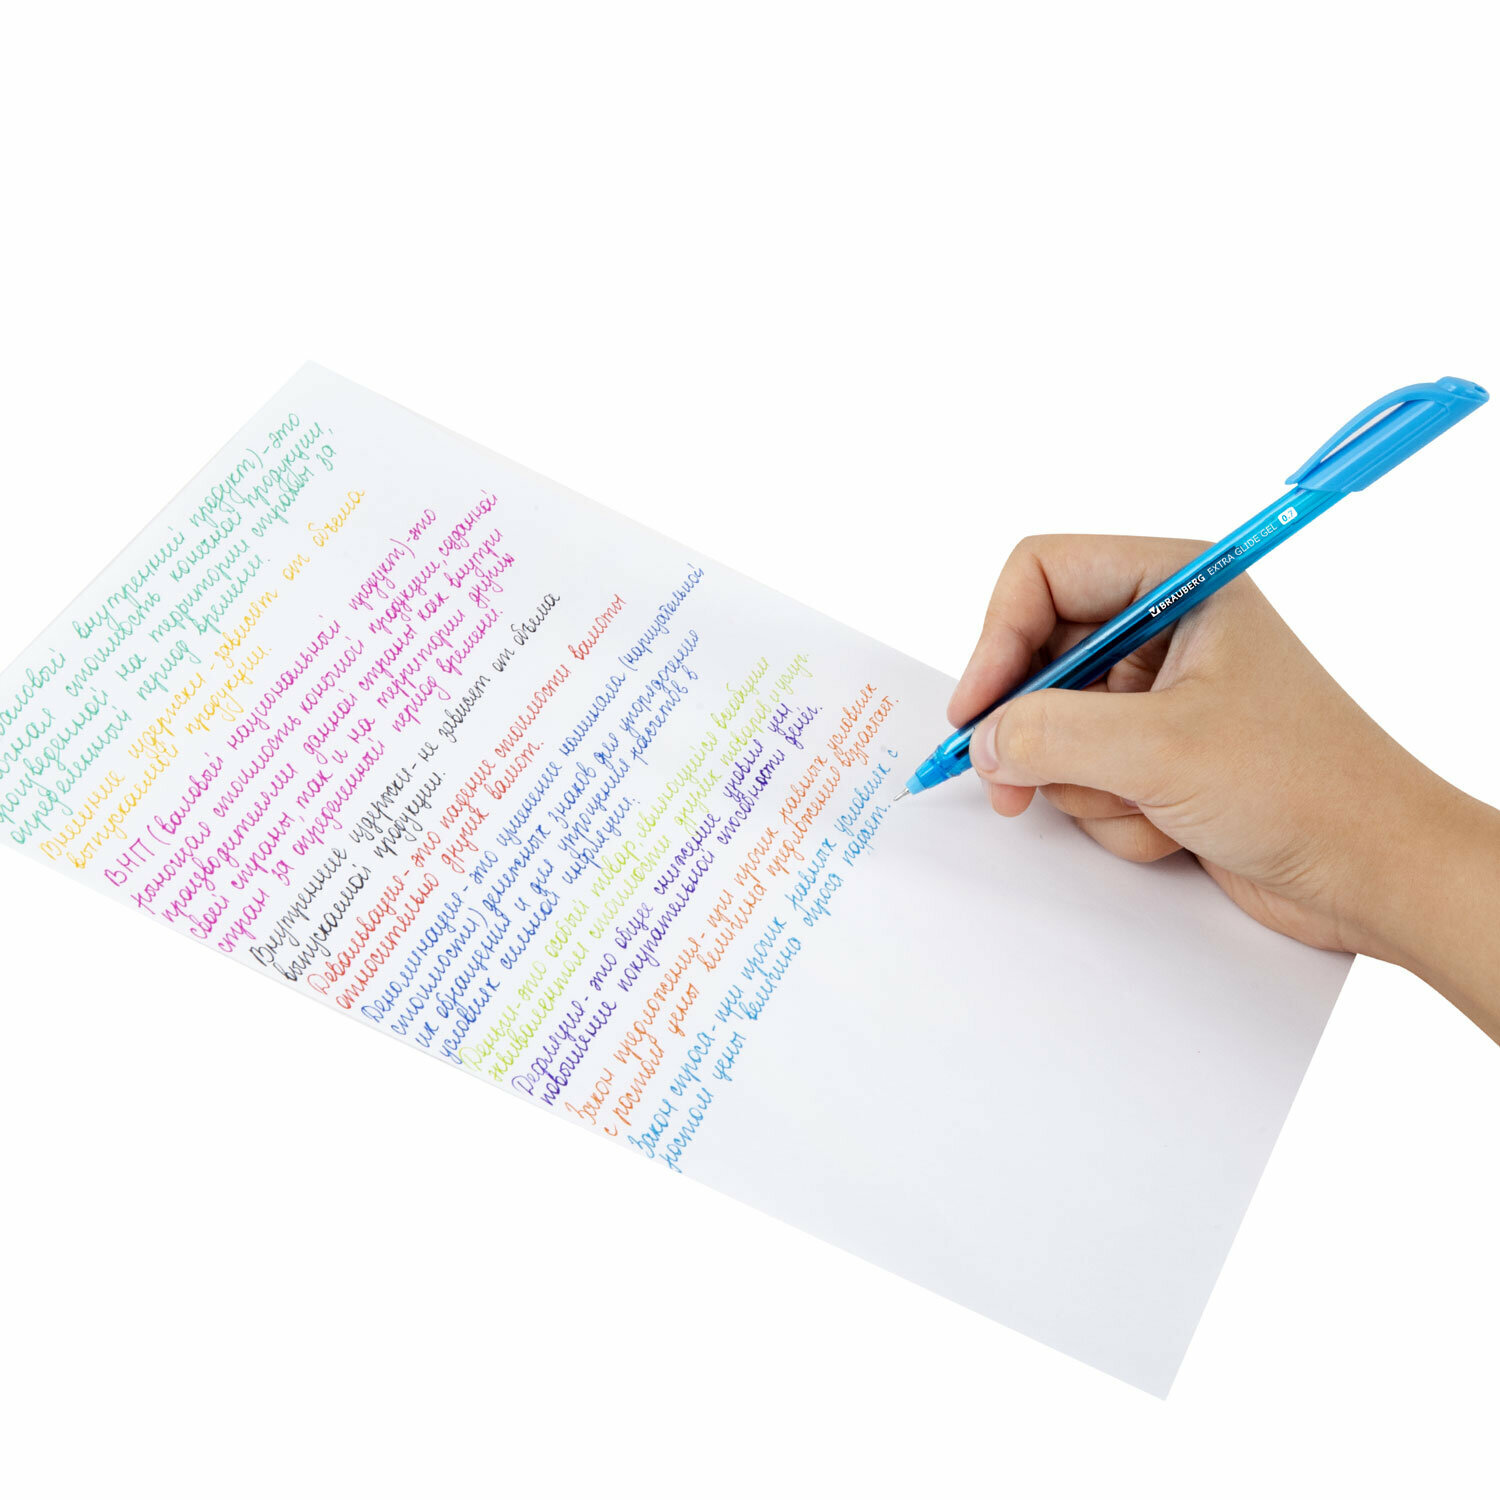 внутренний продукт) - это
стоимость конечной продукции,
на территории страны за
определенный период времени.
Внешние издержки - зависят от объема
выпускаемой продукции.
ВНП (валовый национальный продукт) - это
стоимость конечной продукции, созданной
производителями данной страны как внутри
своей страны, так и на территории других
стран за определенный период времени.
Внутренние издержки - не зависят от объема
выпускаемой продукции.
Девальвация - это падение стоимости валюты
относительно других валют.
Деноминация - это изменение номинала (нарицательной
стоимости) денежных знаков для упорядочение
их обращения и для упрощения расчетов в
условиях сильной инфляции.
Деньги - это особый товар, являющийся всеобщим
эквивалентом стоимости других товаров и услуг.
Дефляция - это общее снижение уровня цен
повышение покупательной способности денег.
Закон предложения - при прочих равных условиях
с ростом цены величина предложение возрастает.
Закон спроса - при прочих равных условиях с
ростом цены величина спроса падает.
BRAUBERG EXTRA GLIDE GEL 0.7